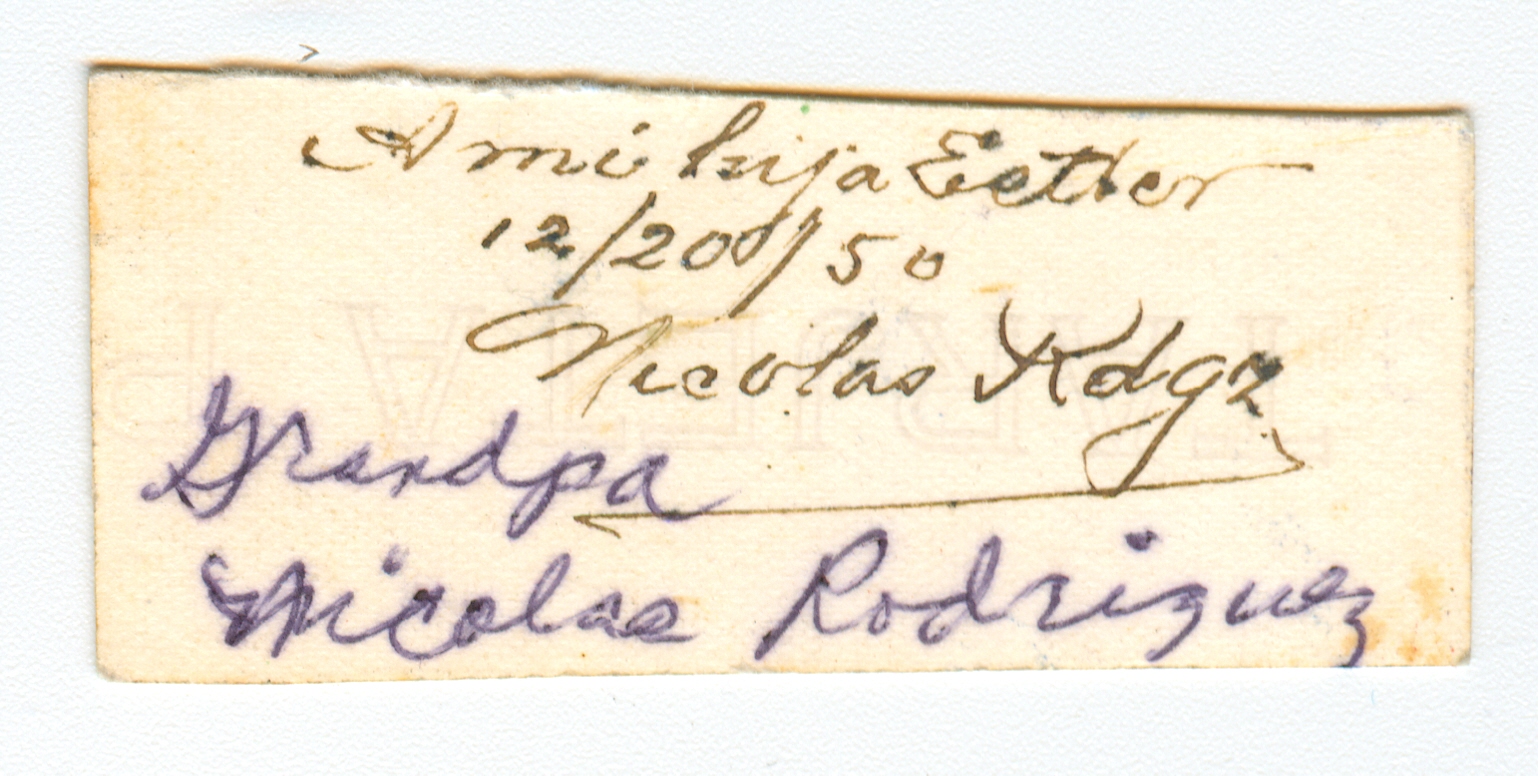 A mi hija Esther
12/20/50
Nicolas Rdgz
Grandpa
Nicolas Rodriguez